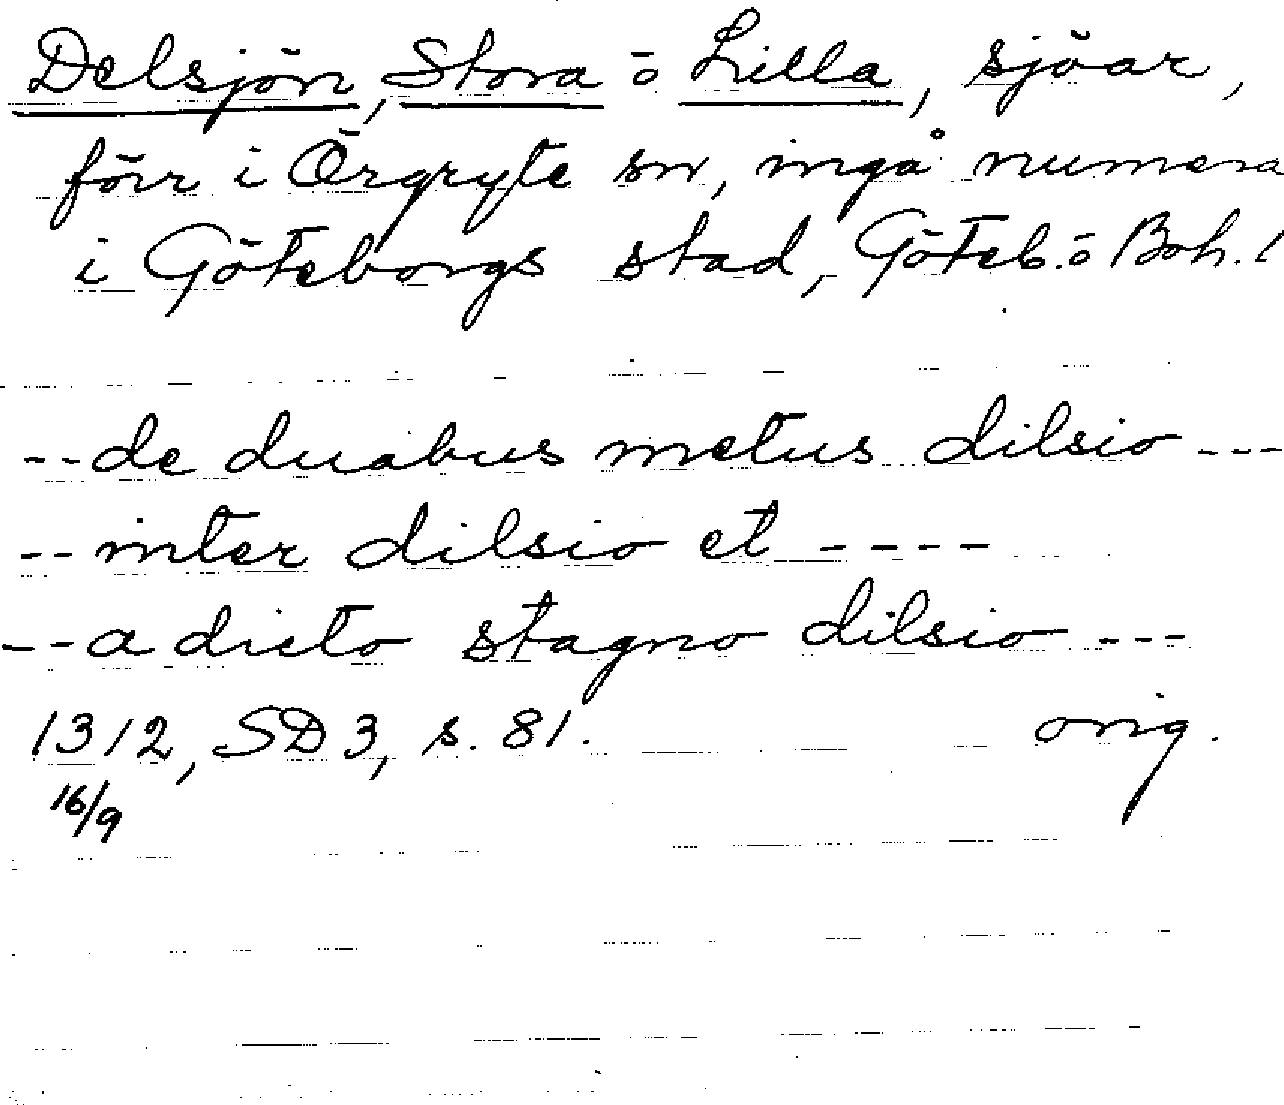 Delsjön, Stora ö Lilla, sjöar,
förr i Örgryte sn, ingå numera
i Göteborgs stad, Göteb. ö Boh. l
--de duabus metus dilsio ---
--inter dilsio et ----
--a dicto stagno dilsio ---
1312, SD 3, s. 81. orig.
16/9